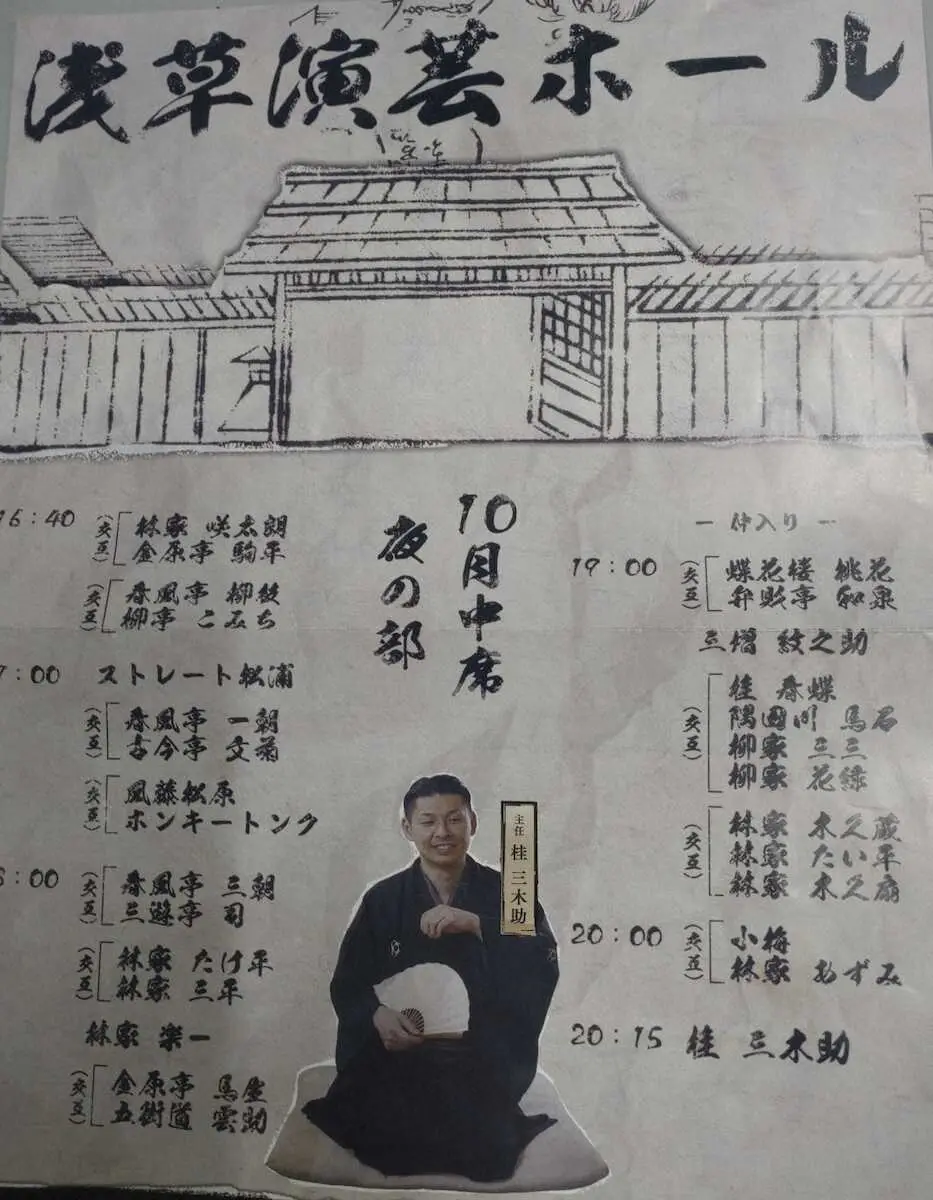 浅草演芸ホール
10月中席
夜の部
16:40
(交互)
林家 咲太朗
金原亭 駒平
(交互)
春風亭 柳枝
柳亭 こみち
7:00
ストレート松浦
(交互)
春風亭 一朝
古今亭 文菊
(交互)
風藤松原
ホンキートンク
:00
(交互)
春風亭 三朝
三遊亭 司
(交互)
林家 たけ平
林家 三平
林家 楽一
(交互)
金原亭 馬生
五街道 雲助
主任 桂 三木助
― 仲入り ―
19:00
(交互)
蝶花楼 桃花
弁財亭 和泉
三増 紋之助
(交互)
桂 春蝶
隅田川 馬石
柳家 三三
柳家 花緑
(交互)
林家 木久蔵
林家 たい平
林家 木久扇
20:00
(交互)
小梅
林家 あずみ
20:15
桂 三木助